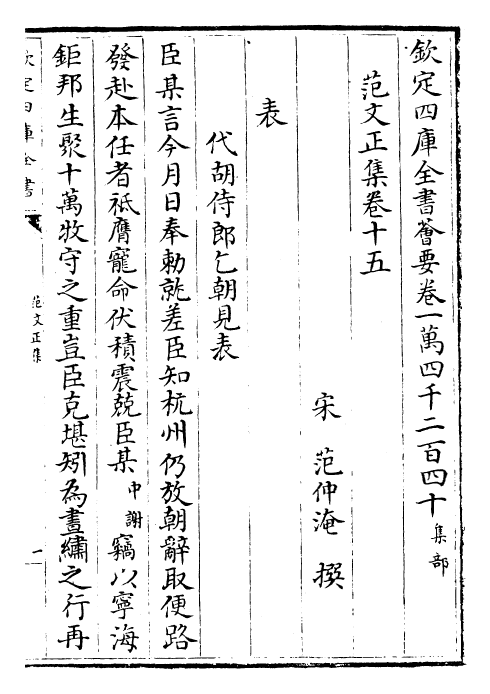 欽定四庫全書薈要卷一萬四千二百四十 集部
范文正集卷十五
宋 范仲淹 撰
表
代胡侍郎乞朝見表
臣某言今月日奉勅就差臣知杭州仍放朝辭取便路
發赴本任者祗膺寵命伏積震兢臣某 中謝 竊以寧海
鉅邦生聚十萬牧守之重豈臣克堪矧為晝繡之行再
欽定四庫全書
范文正集
一